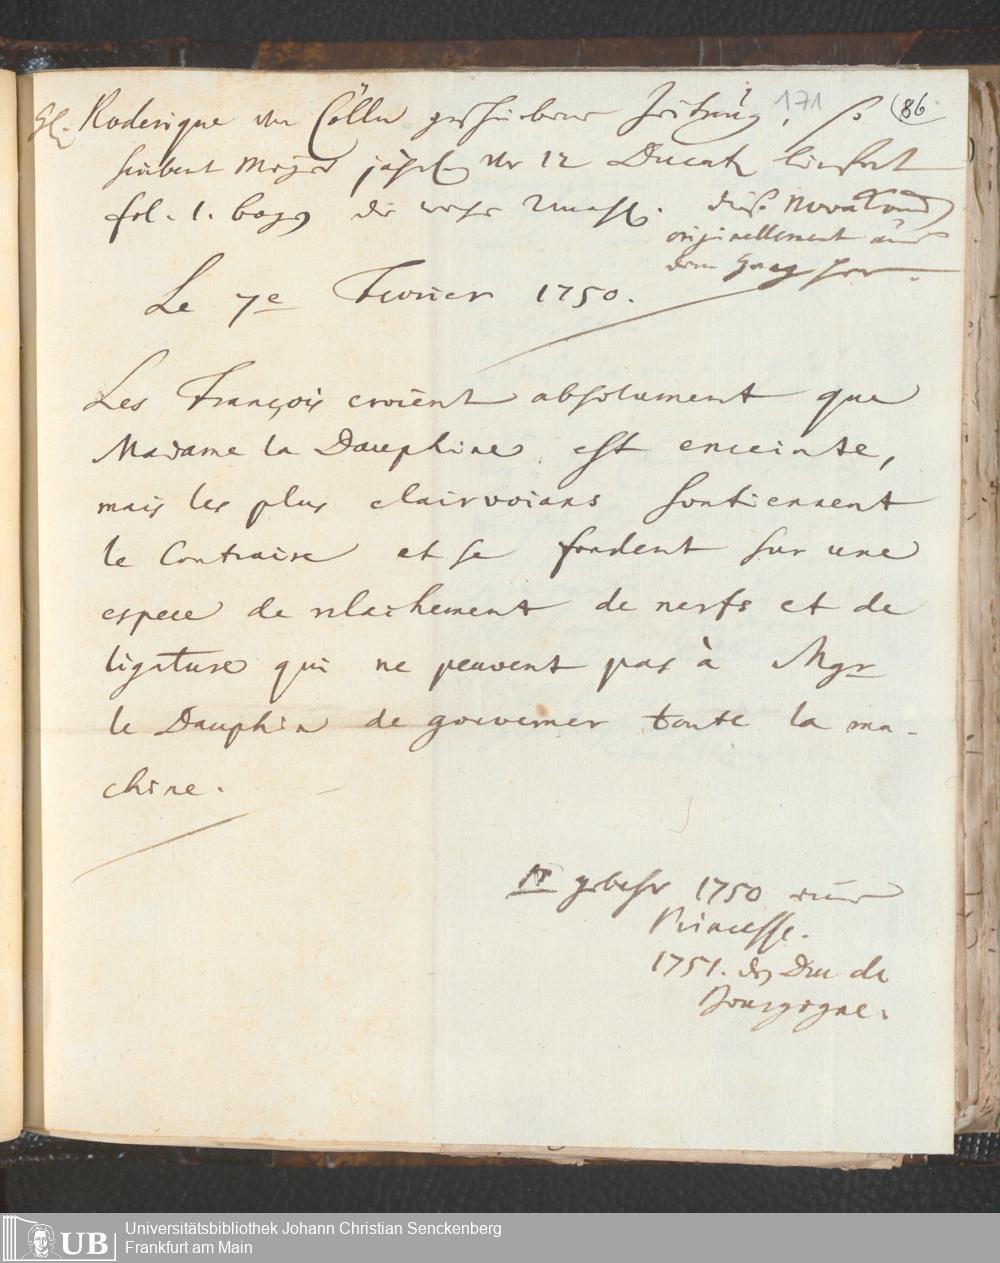 171
86
Roderique von Cölln geschriebene Zeitung, so
hubert Meyer jährl. vor 12 Ducat. liefert
fol. 1. bog die woche 2mahl. diese Nova sind
originellement aus
dem Haag her.
Le 7e Fevrier 1750.
Les François croient absolument que
Madame la Dauphine est enceinte,
mais les plus clairvoians soutiennent
le Contraire et se fondent sur une
espece de relachement de nerfs et de
ligature qui ne peuvent pas à Mgr
le Dauphin de gouverner toute la ma-
chine.
gebahr 1750 eine
Princesse.
1751. den Duc de
Bourgogne.
UB
Universitätsbibliothek Johann Christian Senckenberg
Frankfurt am Main